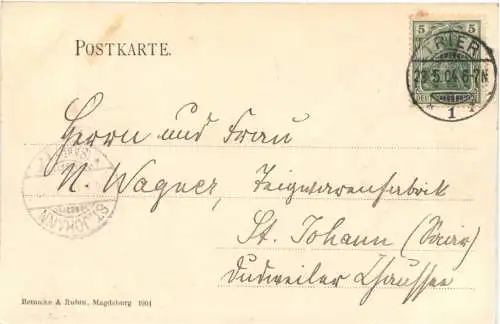 POSTKARTE.
5 5
TRIER
23.5.04.6-7N.
1
Herrn und Frau
N. Wagner, Teigwarenfabrik
St. Johann (Saar)
Dudweiler Chaussee
ST. JOHANN
Reinecke & Rubin, Magdeburg 1901